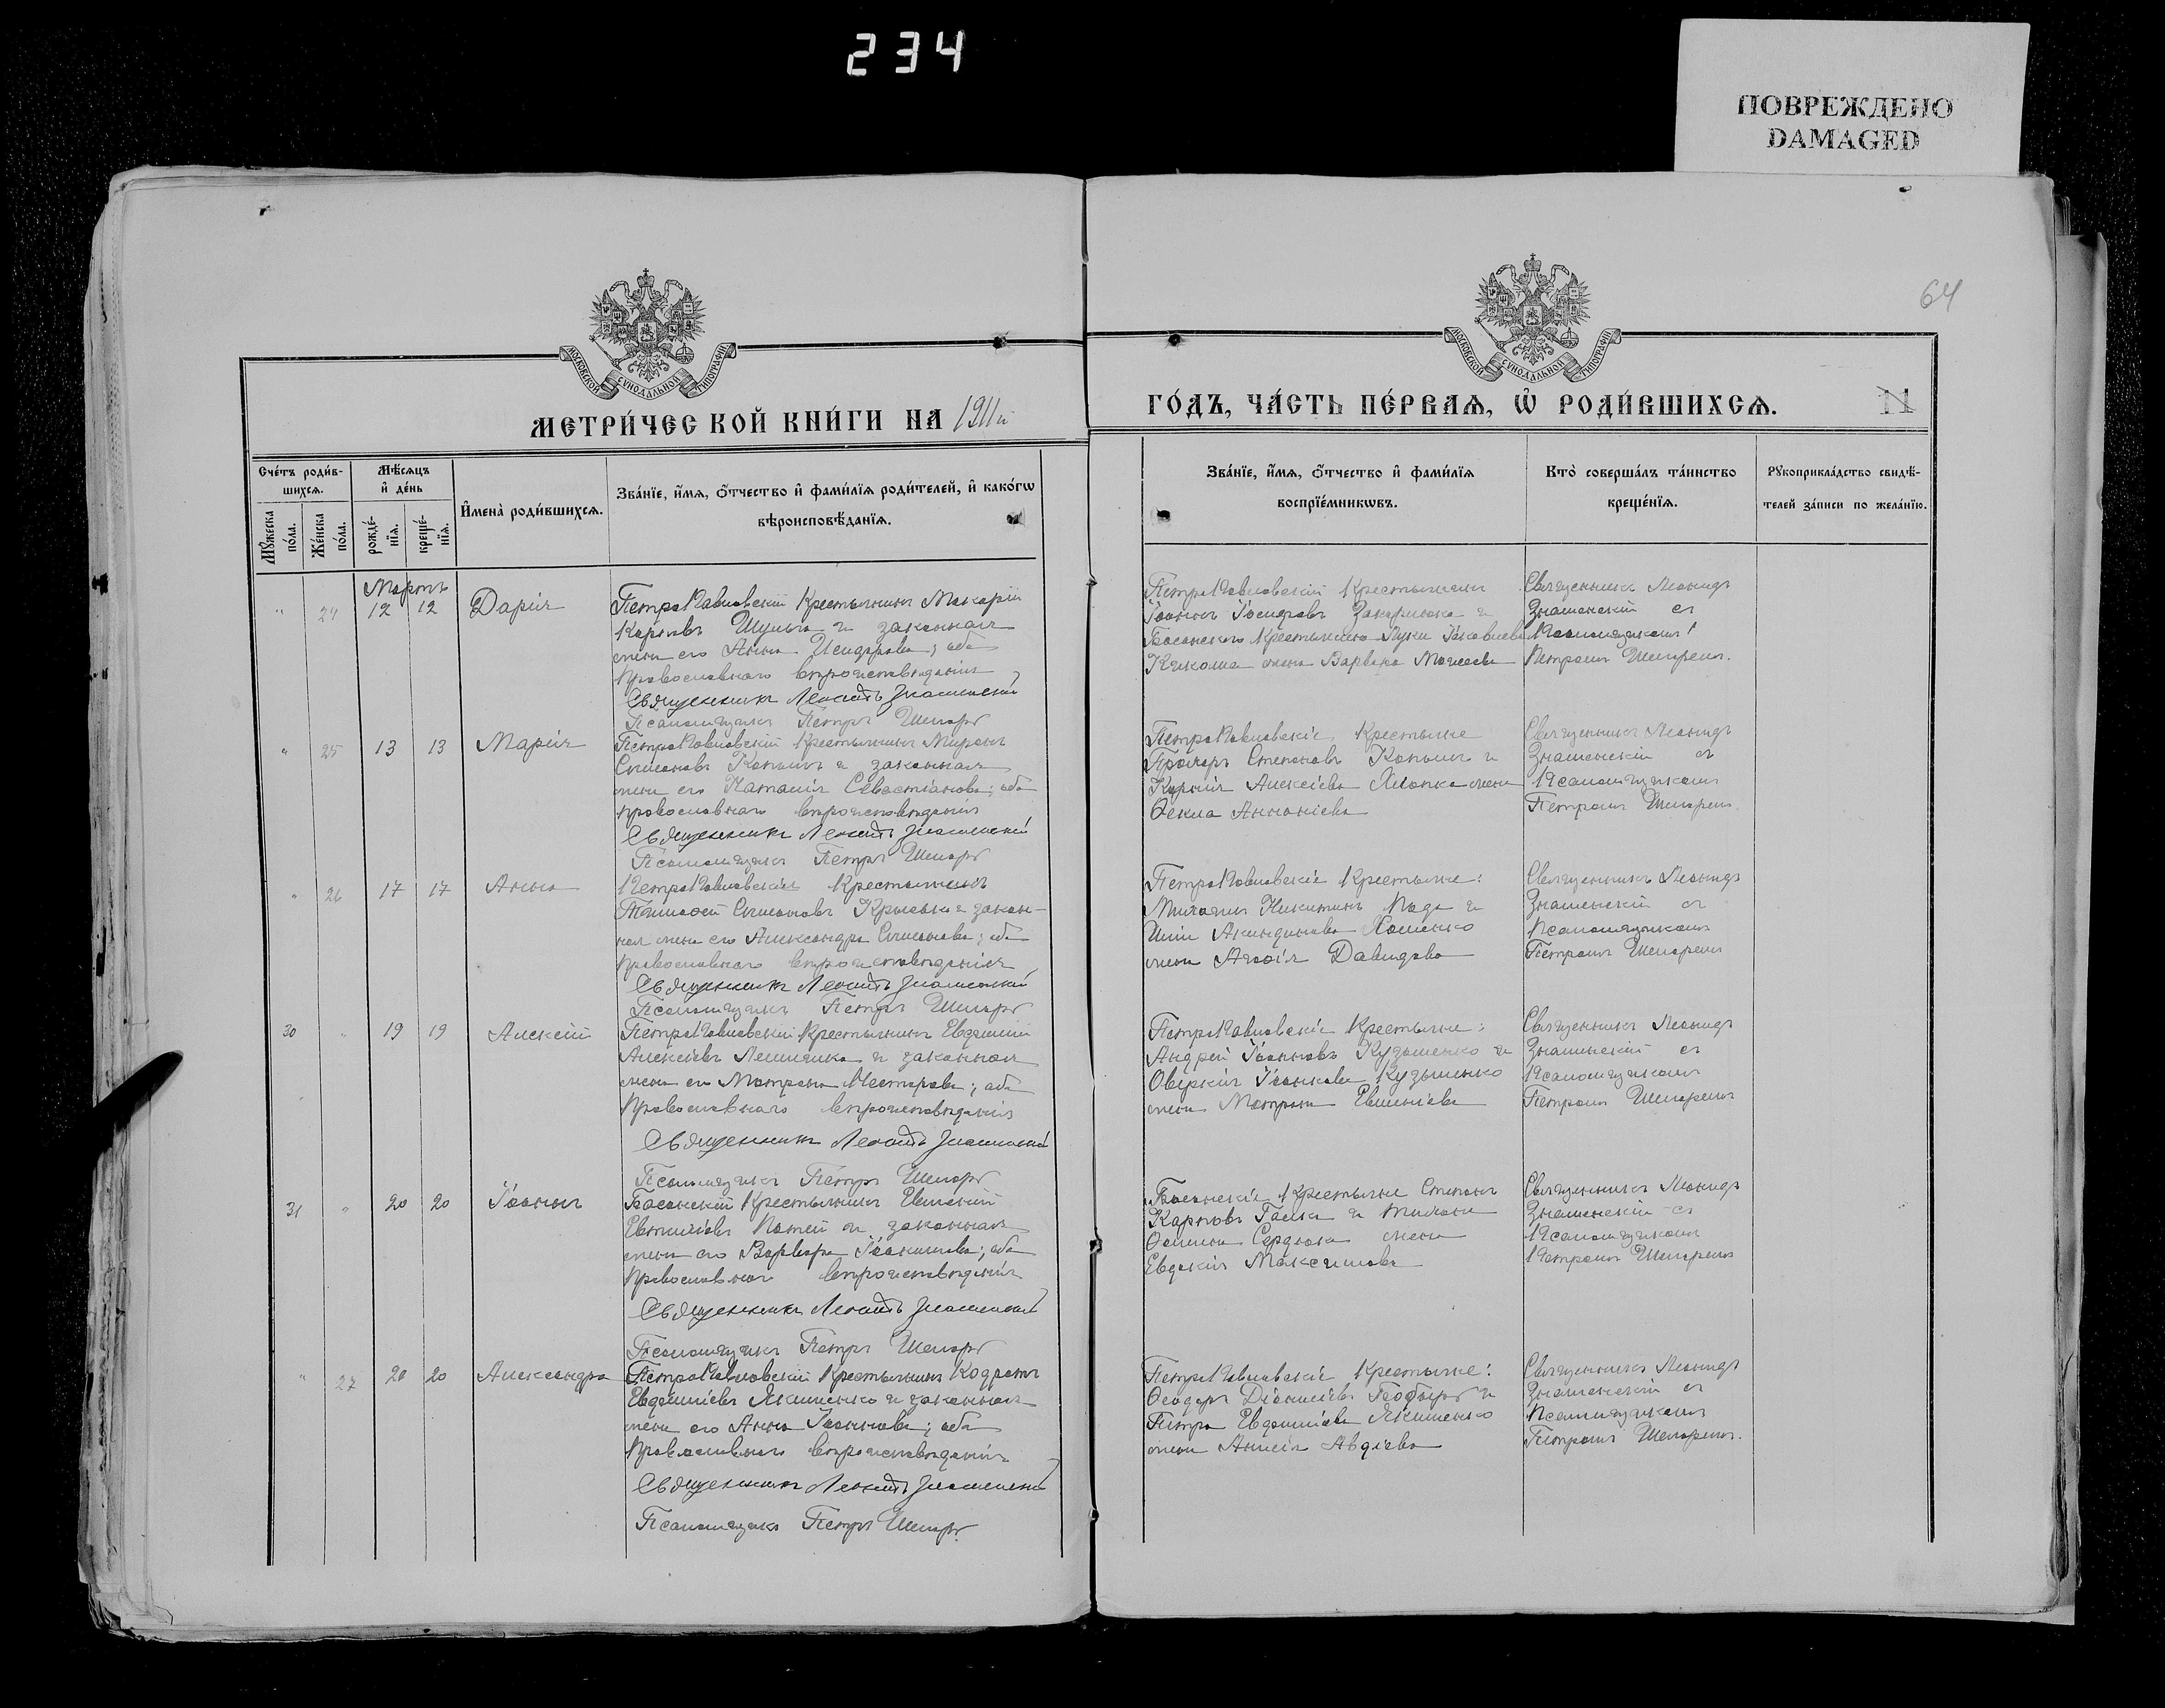 234
ПОВРЕЖДЕНО
DAMAGED
64
МОСКОВСКОЙ СѴНОДАЛЬНОЙ ТИПОГРАФІИ
МОСКОВСКОЙ СѴНОДАЛЬНОЙ ТИПОГРАФІИ
МЕТРИ́ЧЕСКОЙ КНИ́ГИ НА 1911й
ГО́ДЪ, ЧА́СТЬ ПЕ́РВАѦ, Ѡ҆ РОДИ́ВШИХСѦ.
11
Сче́тъ роди́в-
шихсѧ.
Мꙋ́жеска
по́ла.
Же́нска
по́ла.
Мѣ́сѧцъ
и҆ де́нь
рожде́-
нїѧ.
креще́-
нїѧ.
И҆мена̀ роди́вшихсѧ.
Зва́нїе, и҆́мѧ, ѻ҆́тчество и҆ фами́лїѧ роди́телей, и҆ како́гѡ
вѣроисповѣ́данїѧ.
Зва́нїе, и҆́мѧ, ѻ҆́тчество и҆ фами́лїѧ
воспрїе́мникѡвъ.
Кто̀ соверша́лъ та́инство
креще́нїѧ.
Рꙋкоприкла́дство свидѣ́-
телей за́писи по жела́нїю.
Мартъ
" 24 12 12 Дарія
ПетроПавловскій Крестьянинъ Макарій
Карповъ Шульга и законная
жена его Анна Исидорова; оба
православнаго вѣроисповѣданія
Священникъ Леонидъ Знаменскій
Псаломщикъ Петръ Шепаръ
ПетроПавловскій Крестьянинъ
Іоаннъ Исидоровъ и
Басанскаго Крестьянина Луки Іаковлева
жена Варвара Моисеева
Священникъ Леонидъ
Знаменскій съ
Псаломщикомъ
Петромъ Шепаремъ.
" 25 13 13 Марія
ПетроПавловскій Крестьянинъ Миронъ
Симеоновъ и законная
жена его Наталія Севастіанова; оба
православнаго вѣроисповѣданія
Священникъ Леонидъ Знаменскій
Псаломщикъ Петръ Шепаръ
ПетроПавловскіе Крестьяне
Прохоръ Степановъ и
Алексіева жена
Ѳекла Антоніева
Священникъ Леонидъ
Знаменскій съ
Псаломщикомъ
Петромъ Шепаремъ
" 26 17 17 Анна
ПетроПавловскій Крестьянинъ
Тимоѳей Симеоновъ и закон-
ная жена его Александра Симеонова; оба
православнаго вѣроисповѣданія
Священникъ Леонидъ Знаменскій
Псаломщикъ Петръ Шепаръ
ПетроПавловскіе Крестьяне:
Михаилъ Никитинъ и
Акиндинова
жена Агаѳія Давидова
Священникъ Леонидъ
Знаменскій съ
Псаломщикомъ
Петромъ Шепаремъ
30 " 19 19 Алексій
ПетроПавловскій Крестьянинъ Евдокимъ
Алексіевъ и законная
жена его Матрона Несторова; оба
православнаго вѣроисповѣданія
Священникъ Леонидъ Знаменскій
Псаломщикъ Петръ Шепаръ
ПетроПавловскіе Крестьяне:
Андрей Іоанновъ Кузьменко и
Аверкія Іоаннова Кузьменко
жена Матрона Евгеніева
Священникъ Леонидъ
Знаменскій съ
Псаломщикомъ
Петромъ Шепаремъ
31 " 20 20 Іоаннъ
Басанскій Крестьянинъ
и законная
жена его Варвара Іоакимова; оба
православнаго вѣроисповѣданія
Священникъ Леонидъ Знаменскій
Псаломщикъ Петръ Шепаръ
Басанскіе Крестьяне Степанъ
Карповъ и
Сердюка жена
Евдокія Максимова
Священникъ Леонидъ
Знаменскій съ
Псаломщикомъ
Петромъ Шепаремъ
" 27 20 20 Александра
ПетроПавловскій Крестьянинъ Кодратъ
Евдокимовъ Якименко и законная
жена его Анна Іоаннова; оба
православнаго вѣроисповѣданія
Священникъ Леонидъ Знаменскій
Псаломщикъ Петръ Шепаръ
ПетроПавловскіе Крестьяне:
Ѳеодоръ Діонисіевъ и
Петра Евдокимова Якименко
жена Авдіева
Священникъ Леонидъ
Знаменскій съ
Псаломщикомъ
Петромъ Шепаремъ.